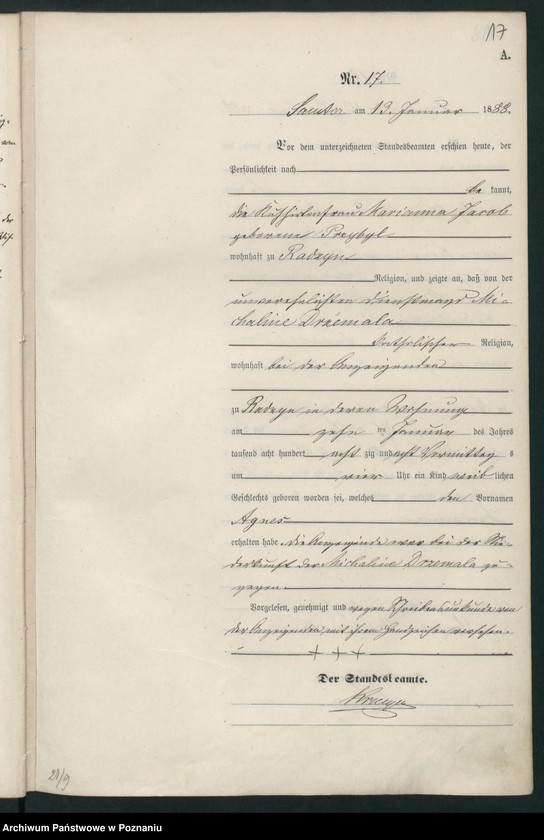 17
A.
Nr. 17.
Samter am 13. Januar 1888.
Vor dem unterzeichneten Standesbeamten erschien heute, der
Persönlichkeit nach
be kannt,
die Kuhhirtenfrau Marianna Jacob
geborene Przybyl
wohnhaft zu Radzyn
Religion, und zeigte an, daß von der
unverehelichten Dienstmagd Mi-
chaline Drzemala
katholischer Religion,
wohnhaft bei der Anzeigenden
zu Radzyn in deren Wohnung
am zehn ten Januar des Jahres
tausend acht hundert acht zig und acht Vormittag s
um vier Uhr ein Kind weib lichen
Geschlechts geboren worden sei, welches den Vornamen
Agnes
erhalten habe. Die Anzeigende war bei der Nie-
derkunft der Michaline Drzemala zu-
gegen.
Vorgelesen, genehmigt und wegen Schreibensunkunde von
der Anzeigenden mit ihrem Handzeichen versehen.
+ + +
Der Standesbeamte.
21/9
Archiwum Państwowe w Poznaniu